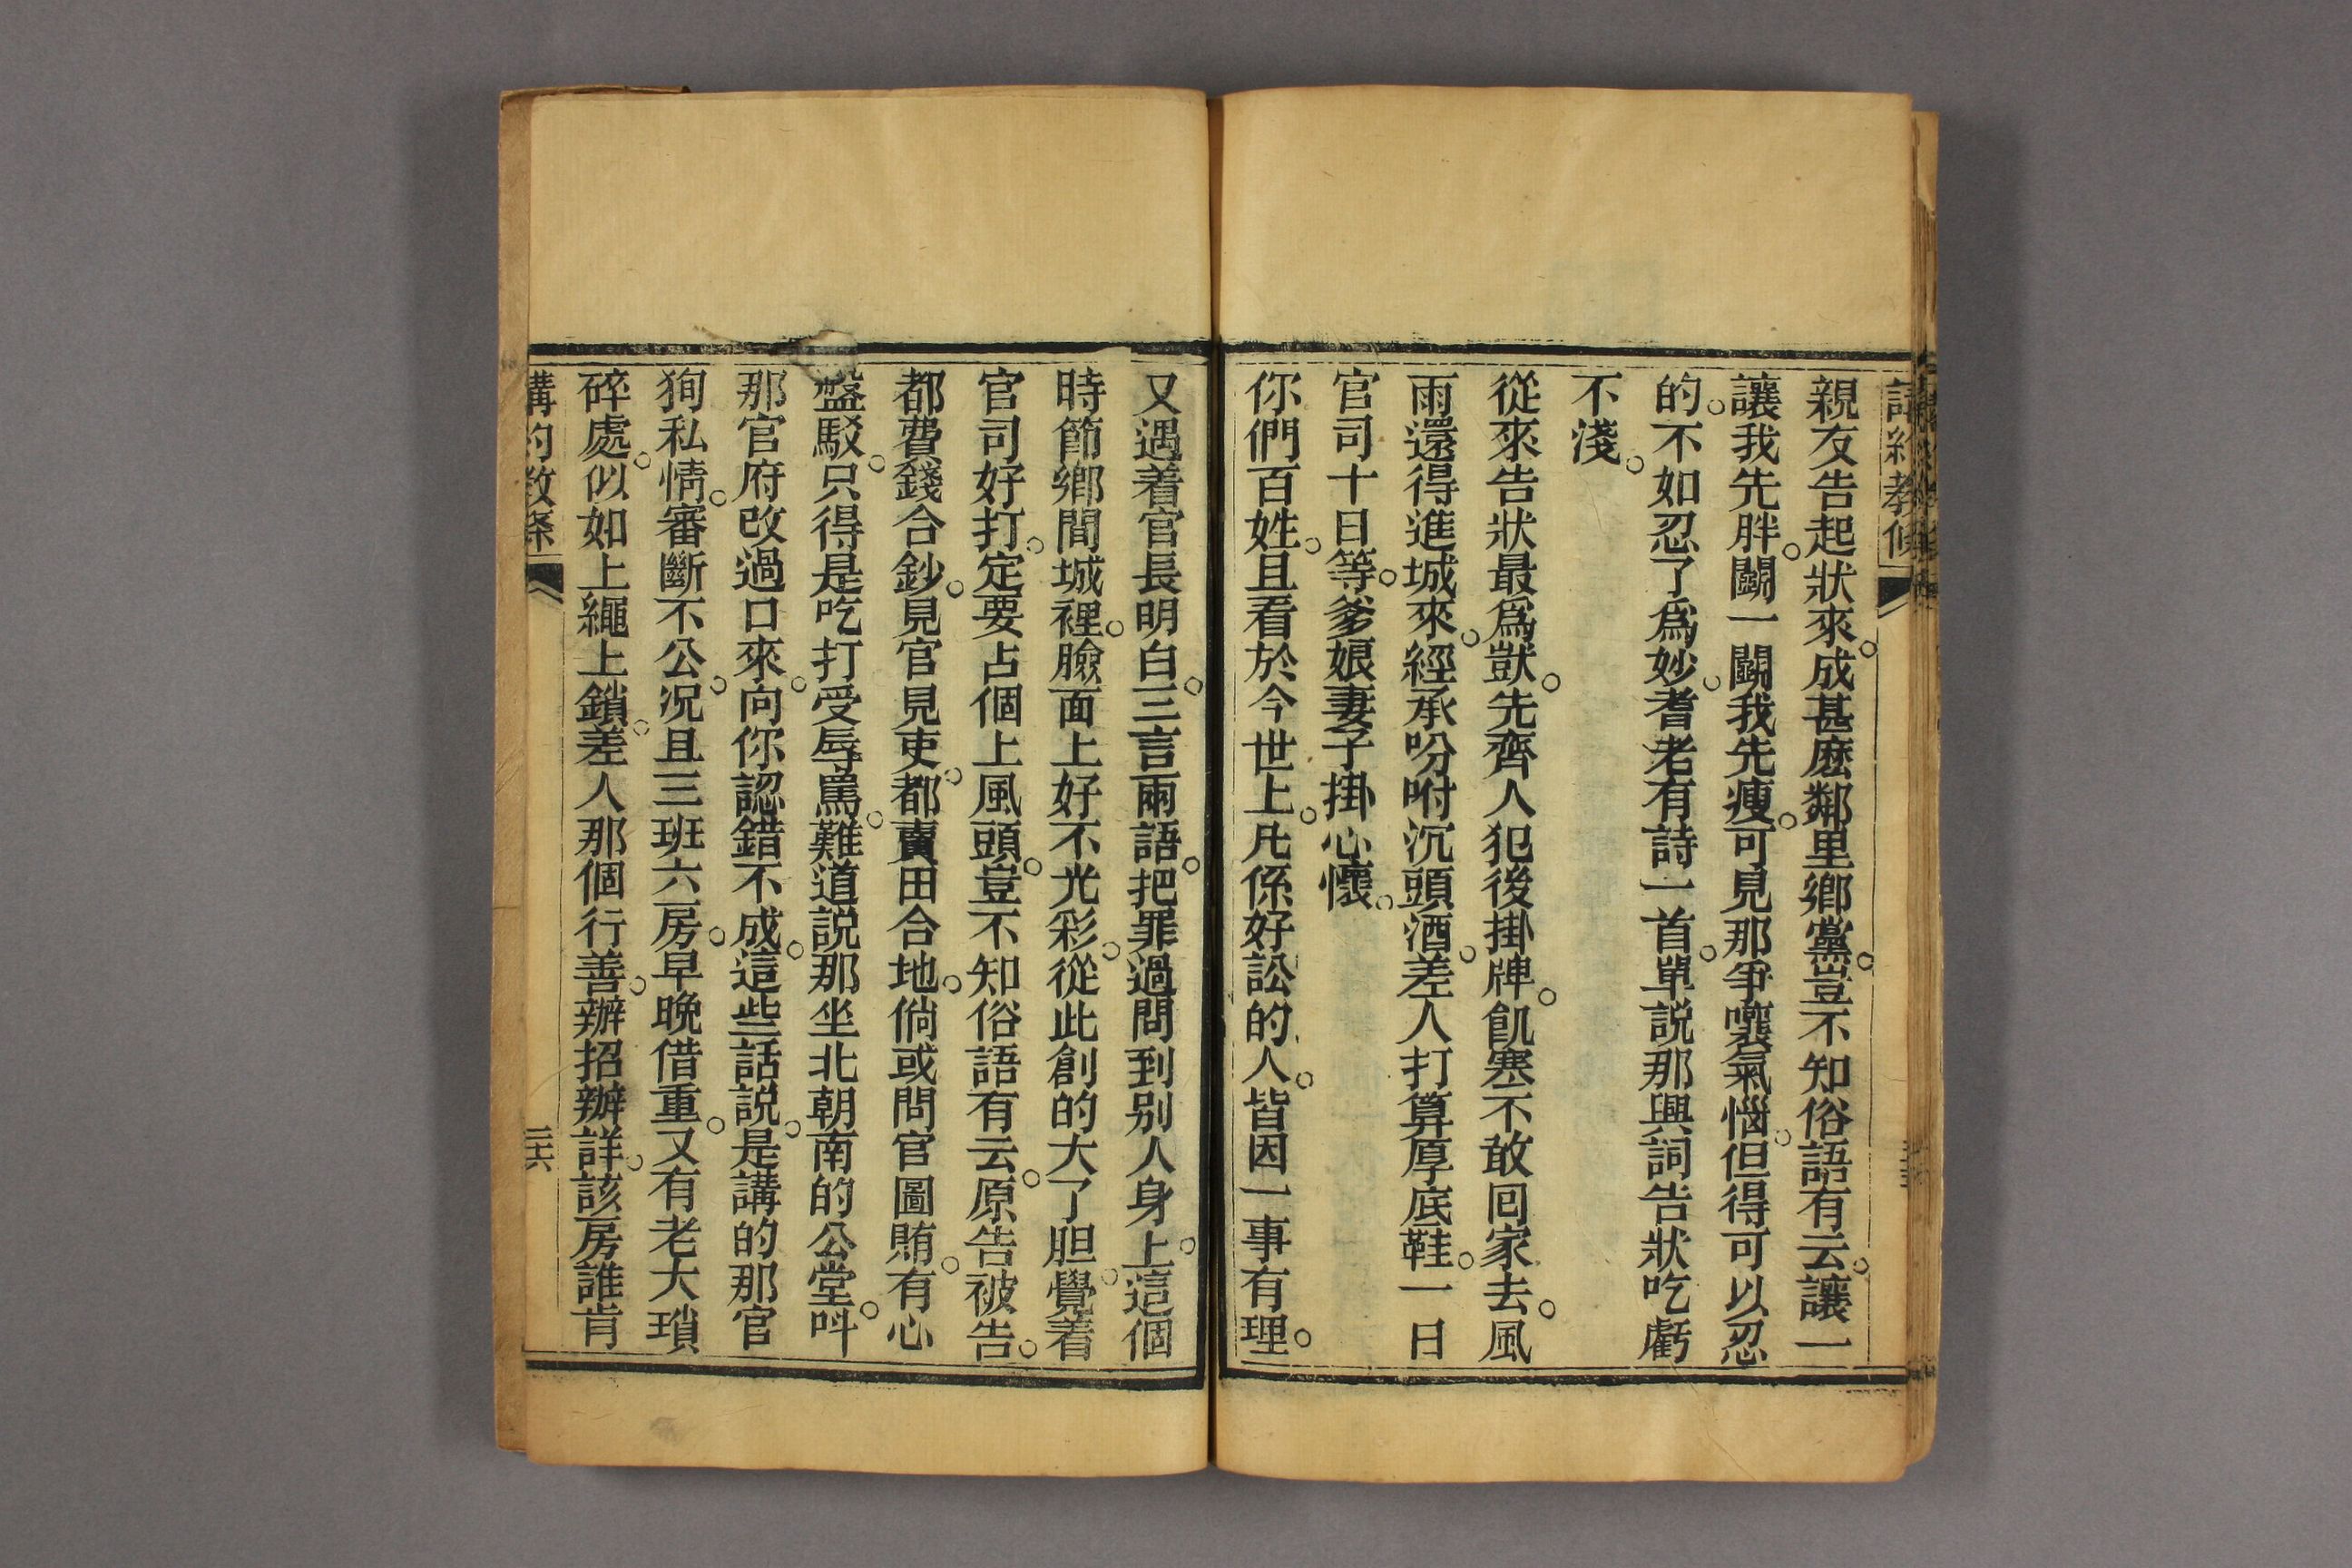 親友告起狀來。成甚麽鄰里鄉黨。豈不知俗語有云。讓一
讓我先胖。鬭一鬭我先瘦。可見那爭嚷氣惱。但得可以忍
的。不如忍了爲妙。耆老有詩一首。單説那興詞告狀吃虧
不淺。
從來告狀最爲獃。先齊人犯後掛牌。飢寒不敢回家去。風
雨還得進城來。經承吩咐沉頭酒。差人打算厚底鞋。一日
官司十日等。爹娘妻子掛心懷。
你們百姓。且看於今世上。凡係好訟的人。皆因一事有理。
又遇着官長明白。三言兩語。把罪過問到别人身上。這個
時節鄉間城裡。臉面上好不光彩。從此創的大了胆。覺着
官司好打。定要占個上風頭。豈不知俗語有云。原告被告。
都費錢合鈔。見官見吏。都賣田合地。倘或問官圖賄。有心
盤駁。只得是吃打受辱罵。難道説那坐北朝南的公堂。呌
那官府改過口來。向你認錯不成。這些話説。是講的那官
狥私情。審斷不公。况且三班六房。早晚借重。又有老大瑣
碎處。似如上繩上鎖。差人那個行善。辦招辦詳。該房誰肯
講約教條
二六